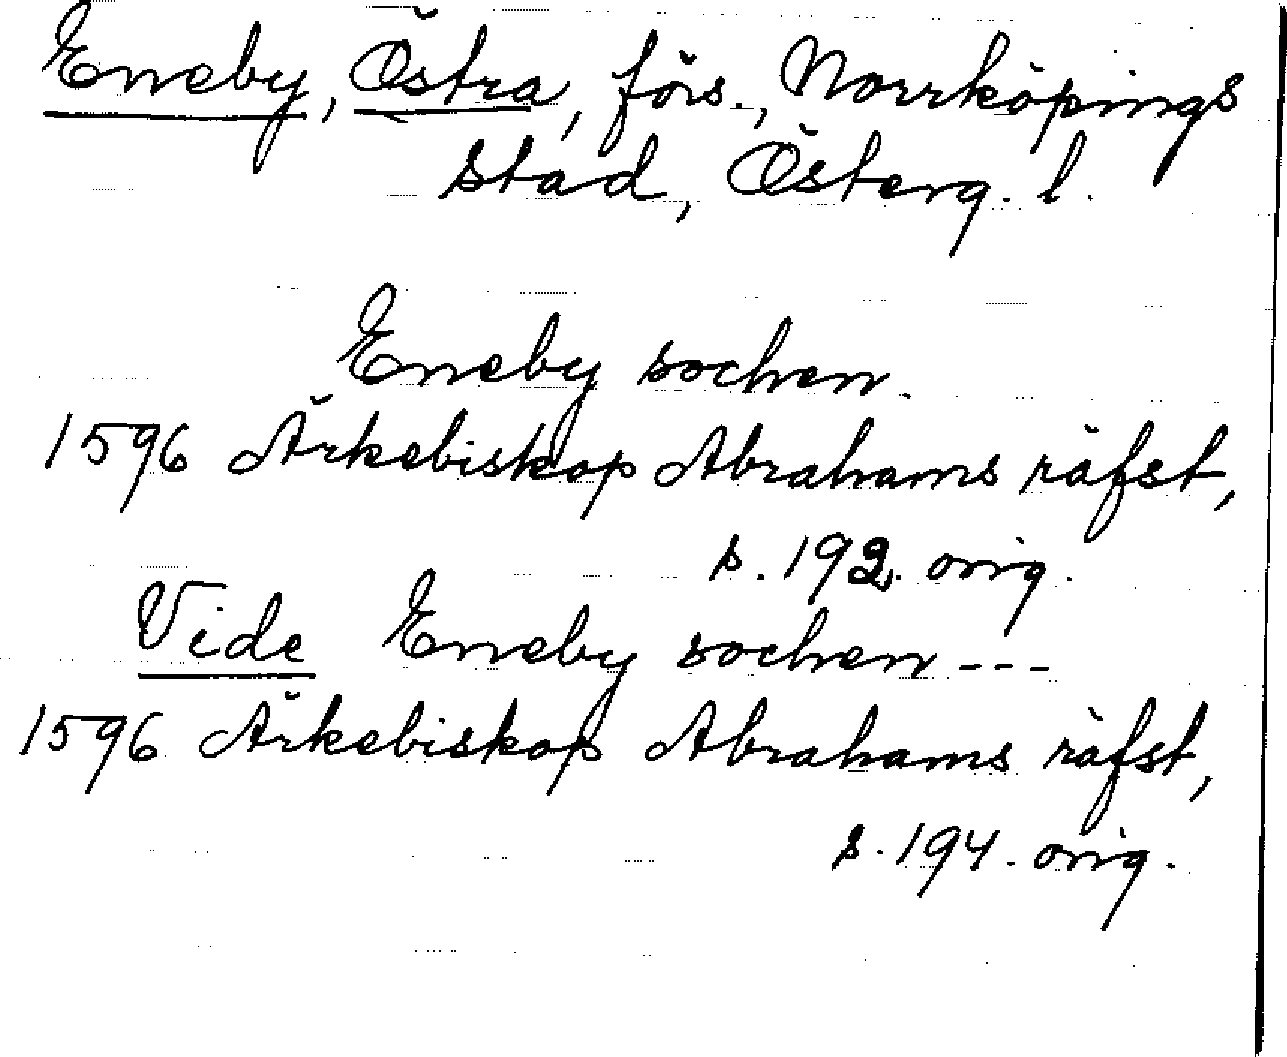 Eneby, Östra, förs., Norrköpings
stad, Österg. l.
Eneby sochen.
1596 Ärkebiskop Abrahams räfst,
s. 192. orig.
Vide Eneby sochen ---
1596 Ärkebiskop Abrahams räfst,
s. 194. orig.